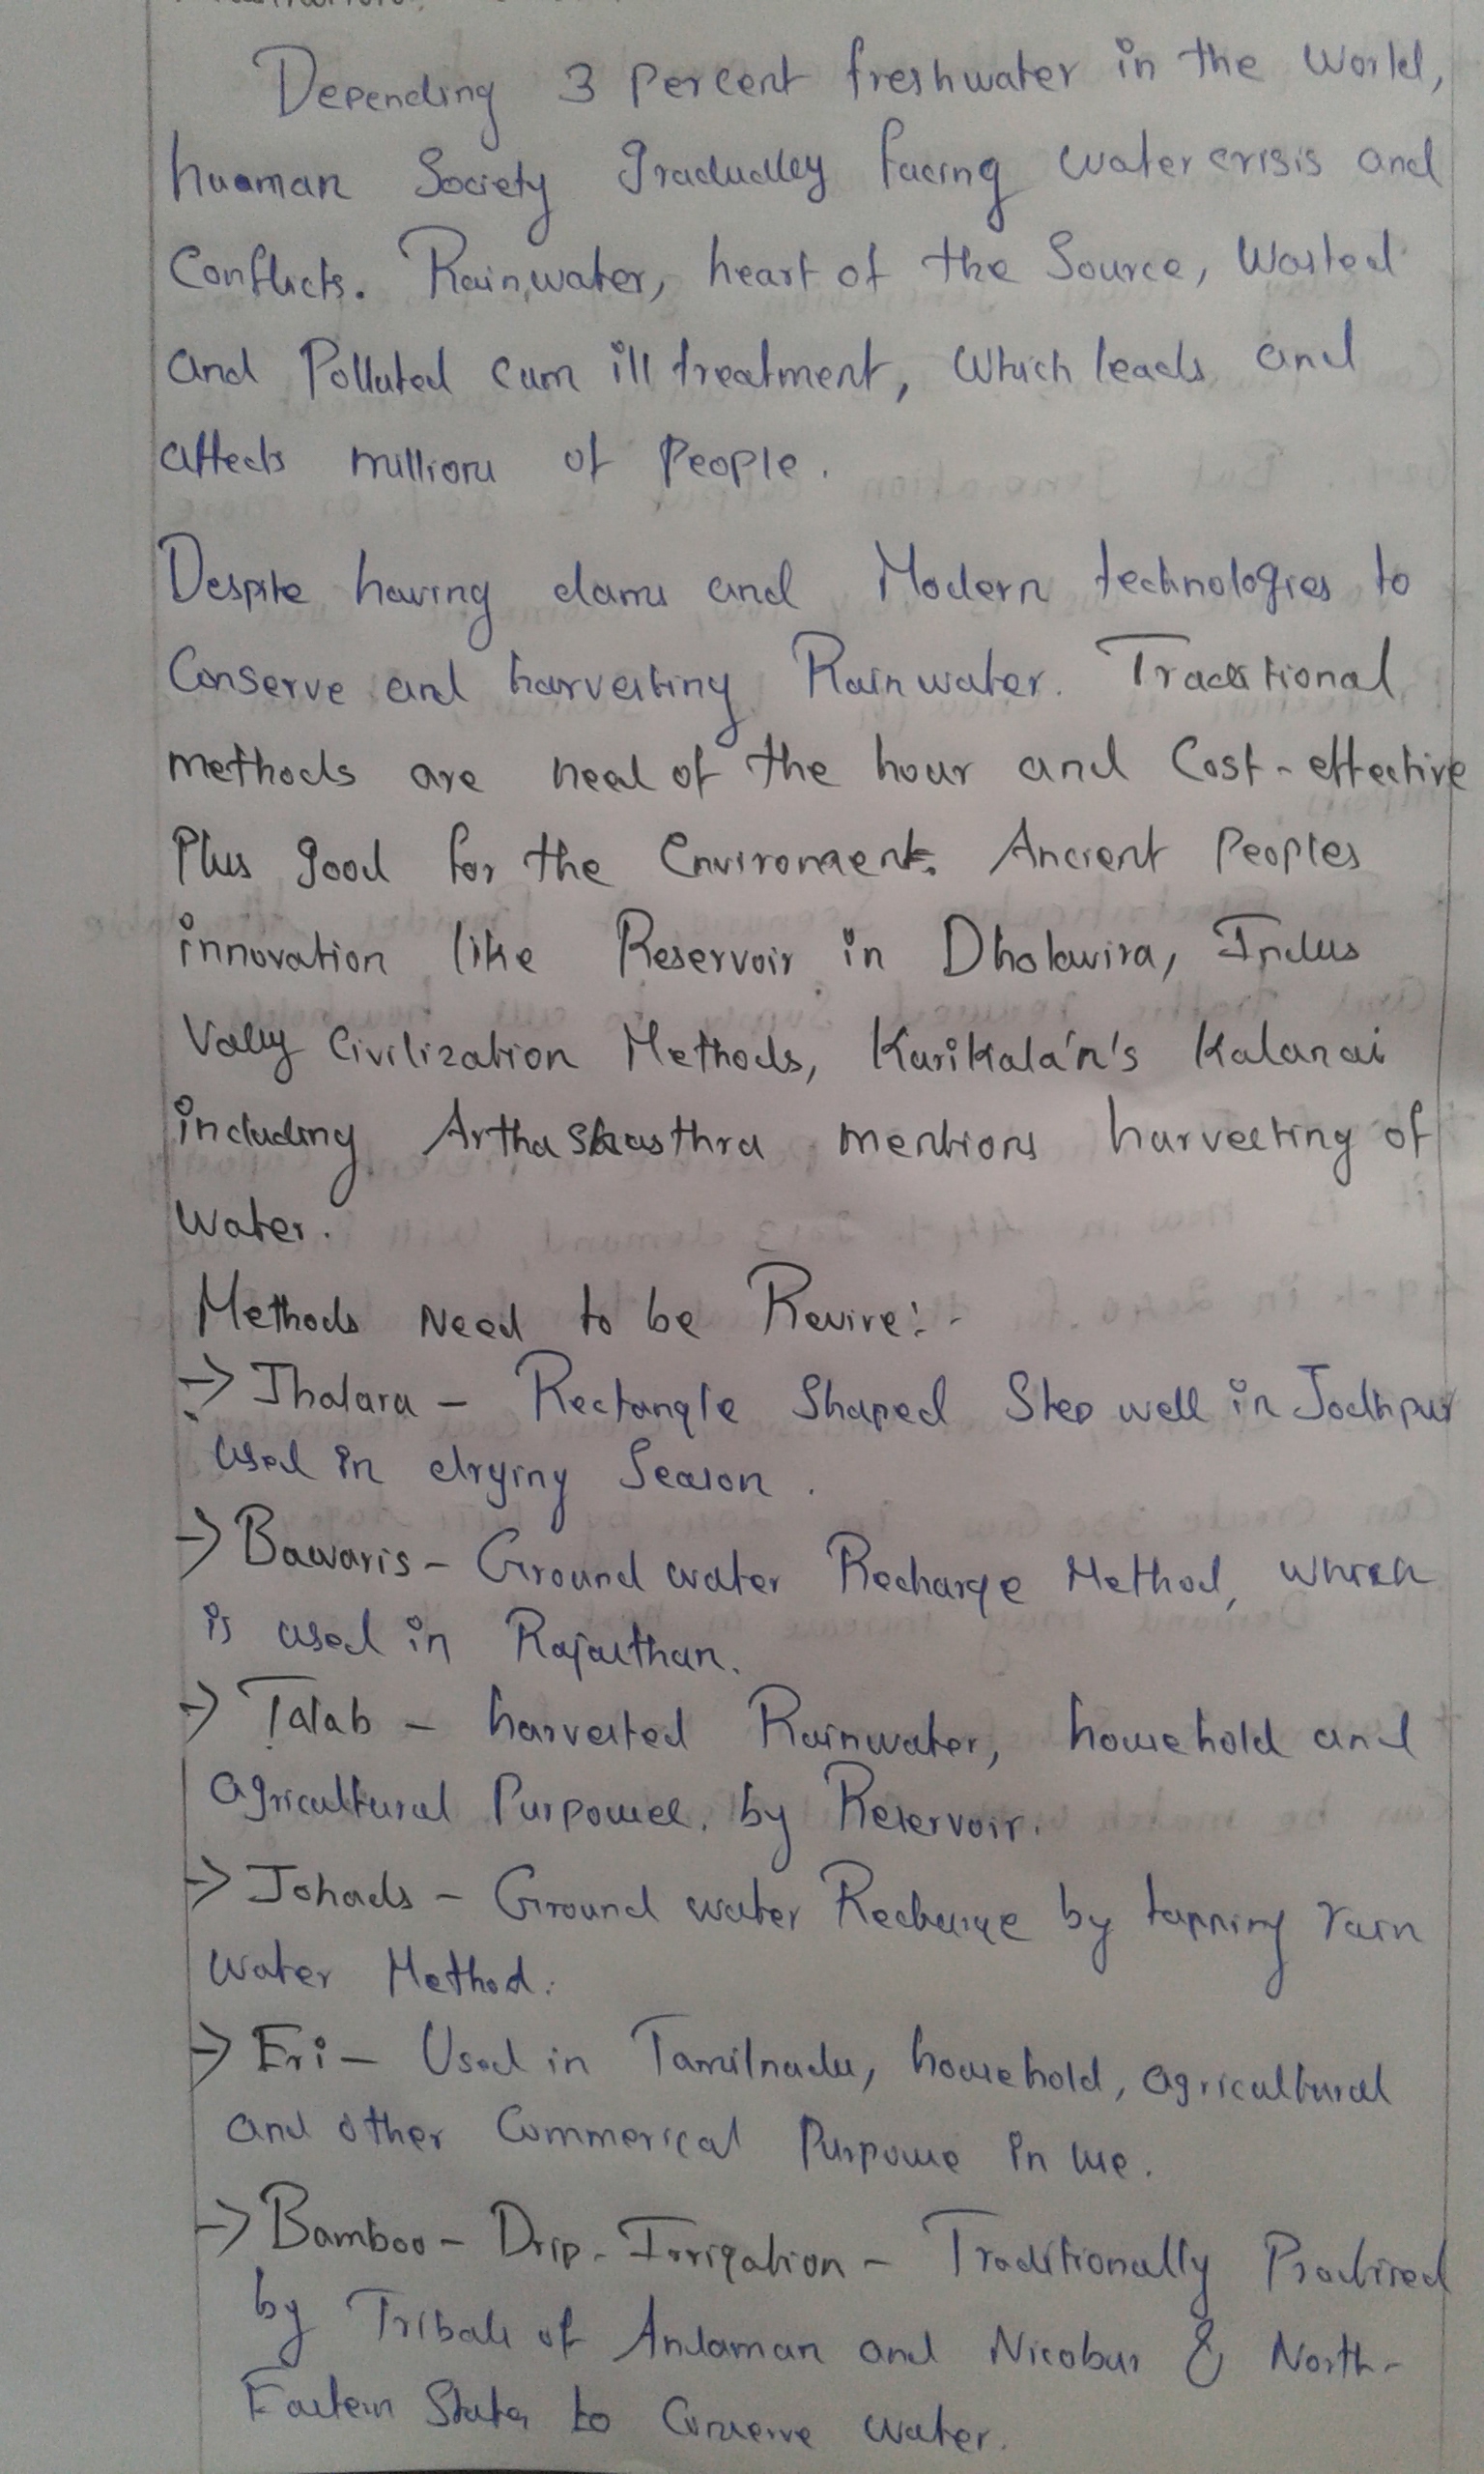 Depending 3 Percent freshwater in the World,
human Society Gradualley facing water crisis and
Conflicts. Rainwater, heart of the Source, Wasted
and Polluted cum ill treatment, which leads and
affects millions of People.
Despite having dams and Modern technologies to
Conserve and harvesting Rainwater. Traditional
methods are need of the hour and Cost-effective
Plus good for the Environment. Ancient Peoples
innovation like Reservoir in Dholavira, Indus
Vally Civilization Methods, Karikalan's Kalanai
including Arthashasthra mentions harvesting of
Water.
Methods Need to be Revive:-
-> Jhalara - Rectangle Shaped Step well in Jodhpur
used in drying Season.
-> Bawaris - Ground water Recharge Method, which
is used in Rajasthan.
-> Talab - harvested Rainwater, household and
agricultural Purposes. by Reservoir.
-> Johads - Ground water Recharge by tapping rain
water Method.
-> Eri - Used in Tamilnadu, household, agricultural
and other Commerical Purpose in use.
-> Bamboo - Drip - Irrigation - Traditionally Practised
by Tribals of Andaman and Nicobar & North-
Eastern States to Conserve water.